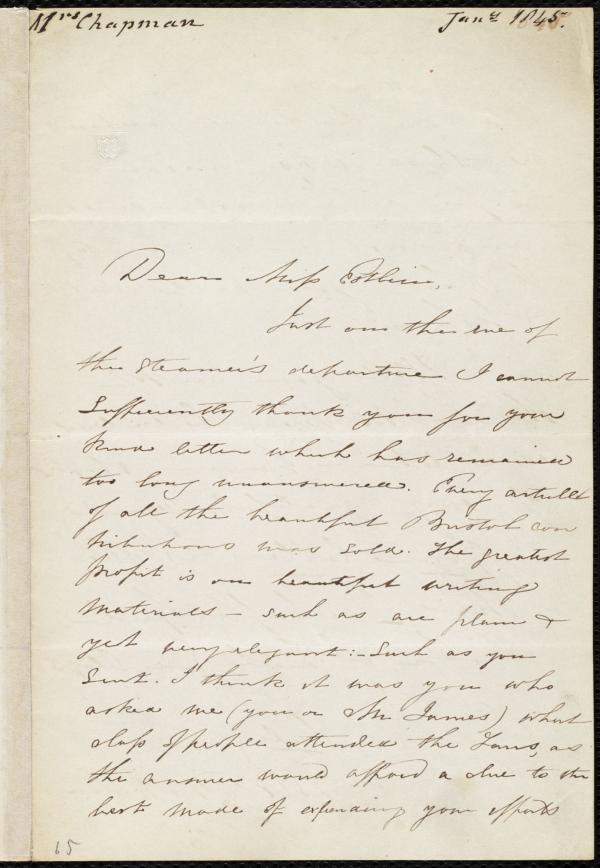 Mrs Chapman Jany 1845.
Dear Miss Estlin,
Just on the eve of
the Steamer's departure I cannot
sufficiently thank you for your
kind letter which has remained
too long unanswered. Every article
of all the beautiful Bristol con
tributions was sold. The greatest
profit is on beautiful writing
materials - such as are plain &
yet very elegant: - Such as you
sent. I think it was you who
asked me (you or Mr James) what
class of people attended the Fairs, as
the answer would afford a clue to the
best mode of expending your efforts
65